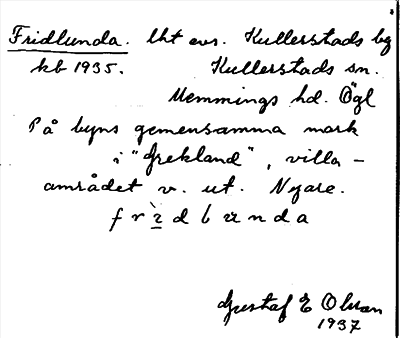 Fridlunda. lht avs. Kullerstads bg
kb 1935. Kullerstads sn.
Memmings hd. Ögl
På byns gemensamma mark
i "Grekland", villa-
området v. ut. Nyare.
f r ì d l u n d a
Gustaf E Olsson
1937